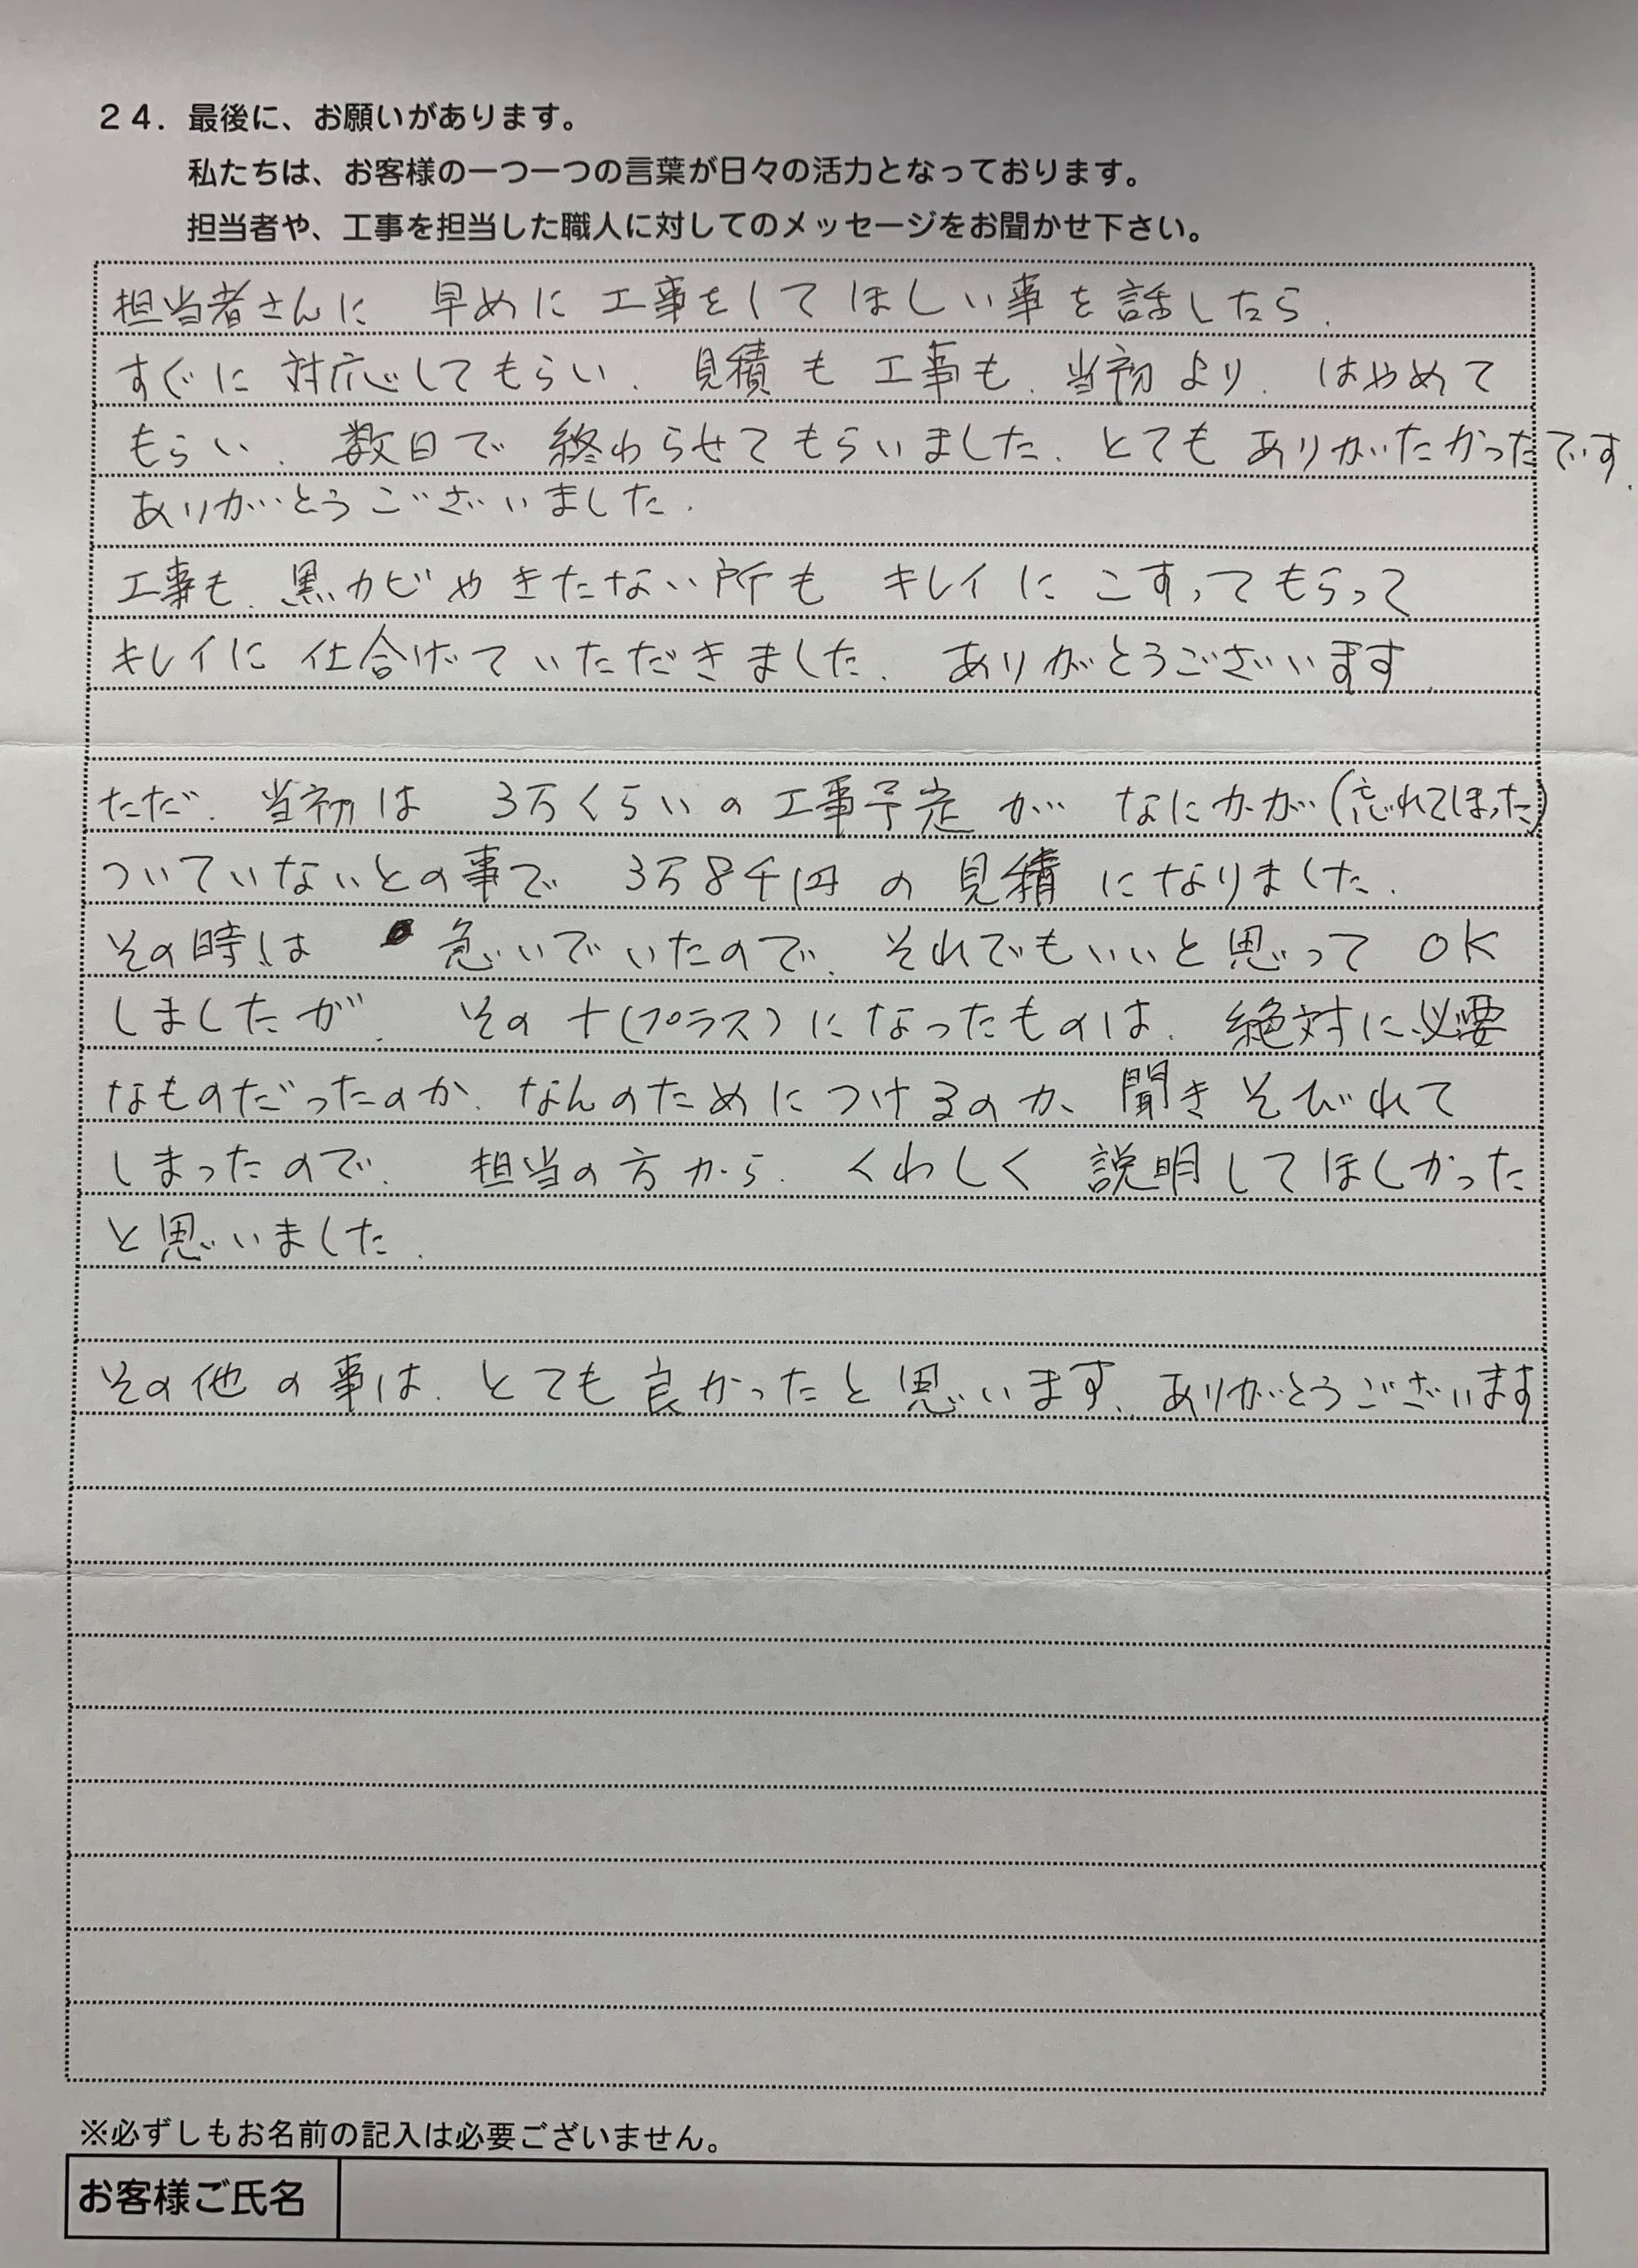 ２４．最後に、お願いがあります。
私たちは、お客様の一つ一つの言葉が日々の活力となっております。
担当者や、工事を担当した職人に対してのメッセージをお聞かせ下さい。
担当者さんに 早めに工事をしてほしい事を話したら、
すぐに対応してもらい、見積も工事も、当初より、はやめて
もらい、数日で終わらせてもらいました。とてもありがたかったです。
ありがとうございました。
工事も、黒カビやきたない所もキレイにこすってもらって
キレイに仕合げていただきました。ありがとうございます。
ただ、当初は 3万くらいの工事予定がなにかが(忘れてしまった)
ついていないとの事で 3万8千円の見積になりました。
その時は 急いでいたので、それでもいいと思ってOK
しましたが、その＋(プラス)になったものは、絶対に必要
なものだったのか、なんのためにつけるのか、聞きそびれて
しまったので、担当の方から、くわしく説明してほしかった
と思いました。
その他の事は、とても良かったと思います、ありがとうございます
※必ずしもお名前の記入は必要ございません。
お客様ご氏名